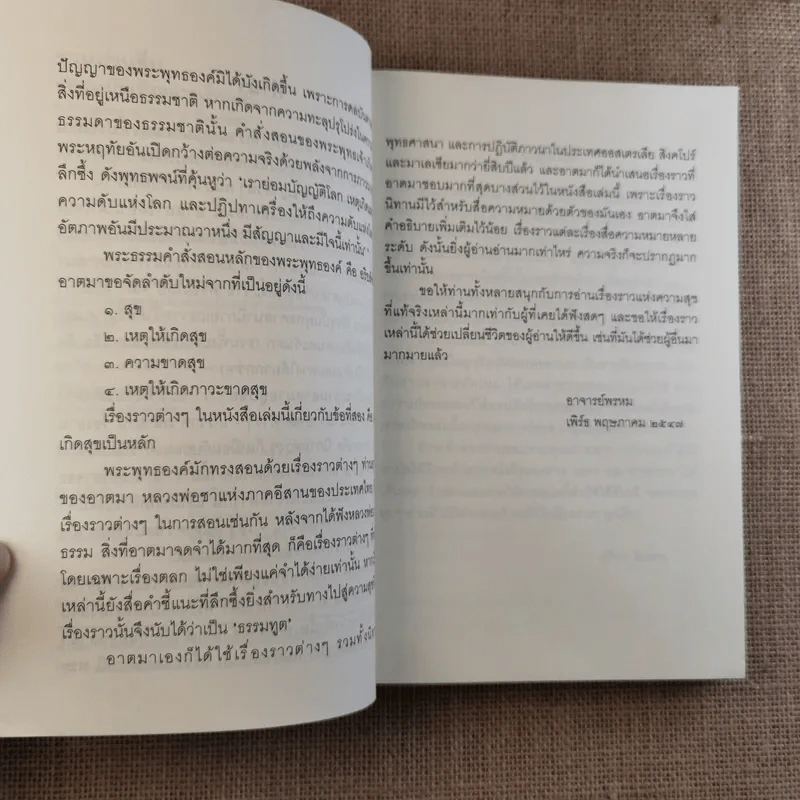 ปัญญาของพระพุทธองค์มิได้บังเกิดขึ้น เพราะการดลบันดาล
สิ่งที่อยู่เหนือธรรมชาติ หากเกิดจากความทะลุปรุโปร่งใน
ธรรมดาของธรรมชาตินั้น คำสั่งสอนของพระพุทธเจ้า
พระหฤทัยอันเปิดกว้างต่อความจริงด้วยพลังจากการภาวนา
ลึกซึ้ง ดังพุทธพจน์ที่คุ้นหูว่า 'เราย่อมบัญญัติโลก เหตุเกิด
ความดับแห่งโลก และปฏิปทาเครื่องให้ถึงความดับแห่ง
อัตภาพอันมีประมาณวาหนึ่ง มีสัญญาและมีใจนี้เท่านั้น'
พระธรรมคำสั่งสอนหลักของพระพุทธองค์ คือ
อาตมาขอจัดลำดับใหม่จากที่เป็นอยู่ดังนี้
๑. สุข
๒. เหตุให้เกิดสุข
๓. ความขาดสุข
๔. เหตุให้เกิดภาวะขาดสุข
เรื่องราวต่างๆ ในหนังสือเล่มนี้เกี่ยวกับข้อที่สอง
เกิดสุขเป็นหลัก
พระพุทธองค์มักทรงสอนด้วยเรื่องราวต่างๆ ท่าน
ของอาตมา หลวงพ่อชาแห่งภาคอีสานของประเทศไทย
เรื่องราวต่างๆ ในการสอนเช่นกัน หลังจากได้ฟังหลวงพ่อ
ธรรม สิ่งที่อาตมาจดจำได้มากที่สุด ก็คือเรื่องราวต่างๆ
โดยเฉพาะเรื่องตลก ไม่ใช่เพียงแค่จำได้ง่ายเท่านั้น
เหล่านี้ยังสื่อคำชี้แนะที่ลึกซึ้งยิ่งสำหรับทางไปสู่ความสุข
เรื่องราวนั้นจึงนับได้ว่าเป็น 'ธรรมทูต'
อาตมาเองก็ได้ใช้เรื่องราวต่างๆ รวมทั้ง
พุทธศาสนา และการปฏิบัติภาวนาในประเทศออสเตรเลีย สิงคโปร์
และมาเลเซียมากว่ายี่สิบปีแล้ว และอาตมาก็ได้นำเสนอเรื่องราวที่
อาตมาชอบมากที่สุดบางส่วนไว้ในหนังสือเล่มนี้ เพราะเรื่องราว
นิทานมีไว้สำหรับสื่อความหมายด้วยตัวของมันเอง อาตมาจึงใส่
คำอธิบายเพิ่มเติมไว้น้อย เรื่องราวแต่ละเรื่องสื่อความหมายหลาย
ระดับ ดังนั้นยิ่งผู้อ่านอ่านมากเท่าไหร่ ความจริงก็จะปรากฏมาก
ขึ้นเท่านั้น
ขอให้ท่านทั้งหลายสนุกกับการอ่านเรื่องราวแห่งความสุข
ที่แท้จริงเหล่านี้มากเท่ากับผู้ที่เคยได้ฟังสดๆ และขอให้เรื่องราว
เหล่านี้ได้ช่วยเปลี่ยนชีวิตของผู้อ่านให้ดีขึ้น เช่นที่มันได้ช่วยผู้อื่นมา
มากมายแล้ว
อาจารย์พรหม
เพิร์ธ พฤษภาคม ๒๕๔๗